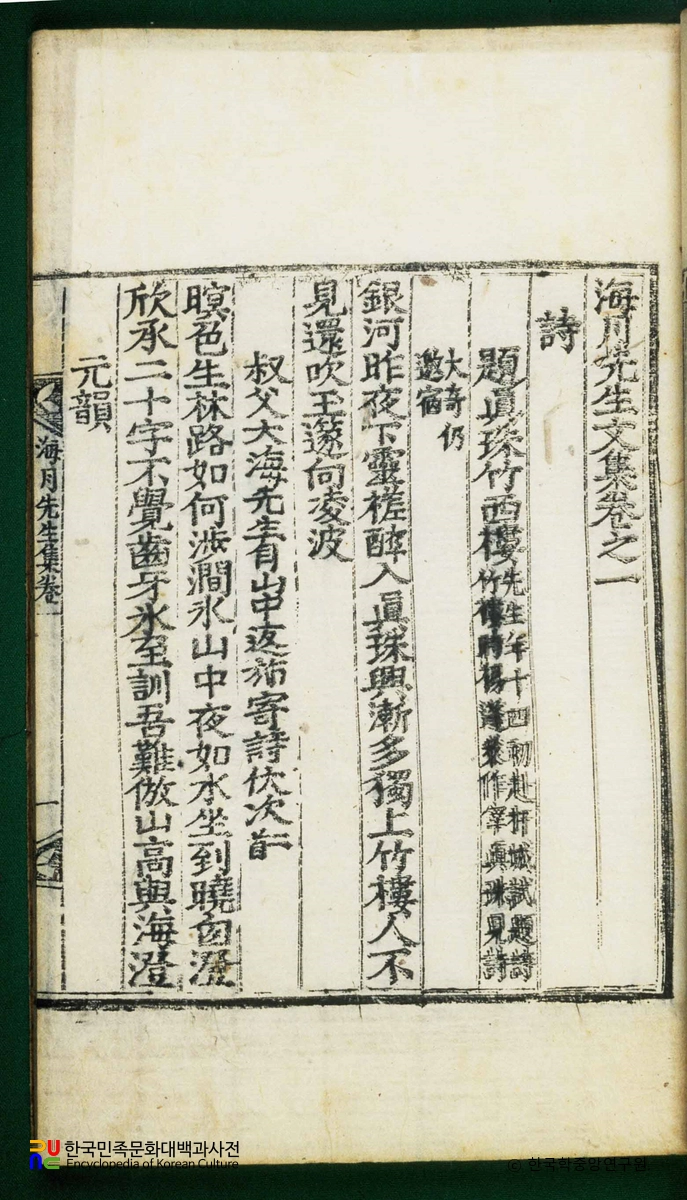 海月先生文集卷之一
詩
題眞珠竹西樓先生年十四初赴杆城試題詩
竹樓時楊蓬萊作宰眞珠見詩
大奇仍
邀宿
銀河昨夜下靈槎醉入眞珠興漸多獨上竹樓人不
見還吹玉邃向凌波
叔父大海先生自山中返旆寄詩伏次二首
暝色生林路如何泝澗氷山中夜如水坐到曉囪澄
欣承二十字不覺齒牙氷至訓吾難倣山高與海澄
元韻
海月先生集卷一
一
한국민족문화대백과사전
Encyclopedia of Korean Culture
© 한국학중앙연구원